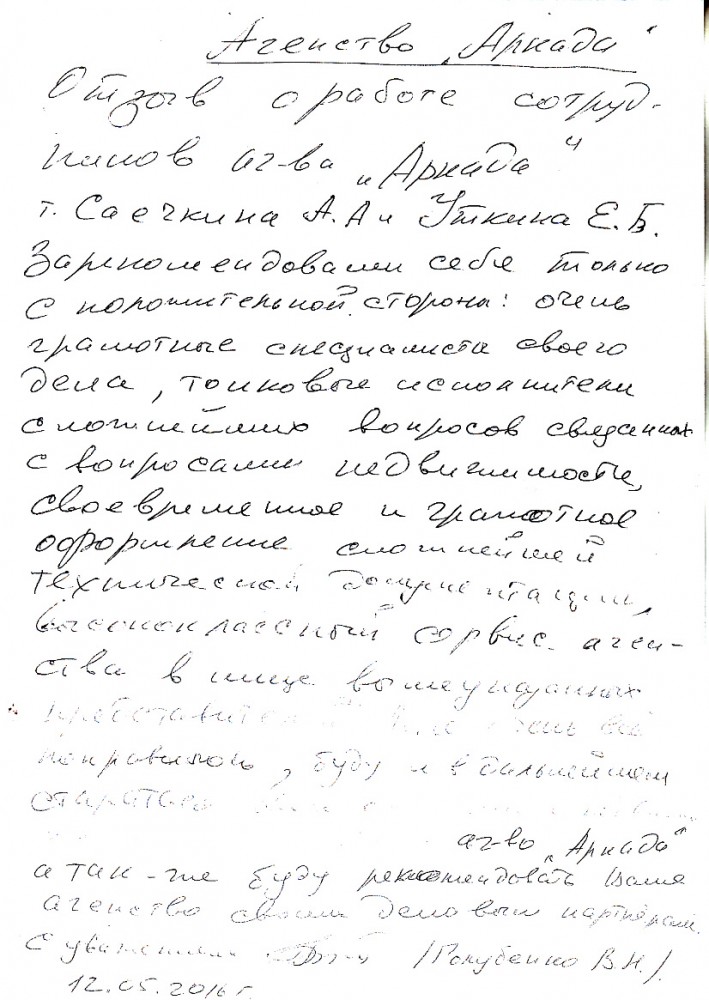 Агенство „Аркада"
Отзыв о работе сотруд-
ников аг-ва „Аркада"
т. Саечкина А.А и Уткина Е.Б.
Зарекомендовали себя только
с положительной стороны: очень
грамотные специалисты своего
дела, толковые исполнители
сложнейших вопросов связанных
с вопросами недвижимости,
своевременное и грамотное
оформление сложнейшей
технической документации,
высококлассный сервис аген-
ства в лице вышеуказанных
представителей очень всё
понравилось, буду и в дальнейшем
стараться
аг-во „Аркада"
а так-же буду рекомендовать Ваше
агенство своим деловым партнёрам.
С уважением /Голубенко В.Н/.
12.05.2016 г.